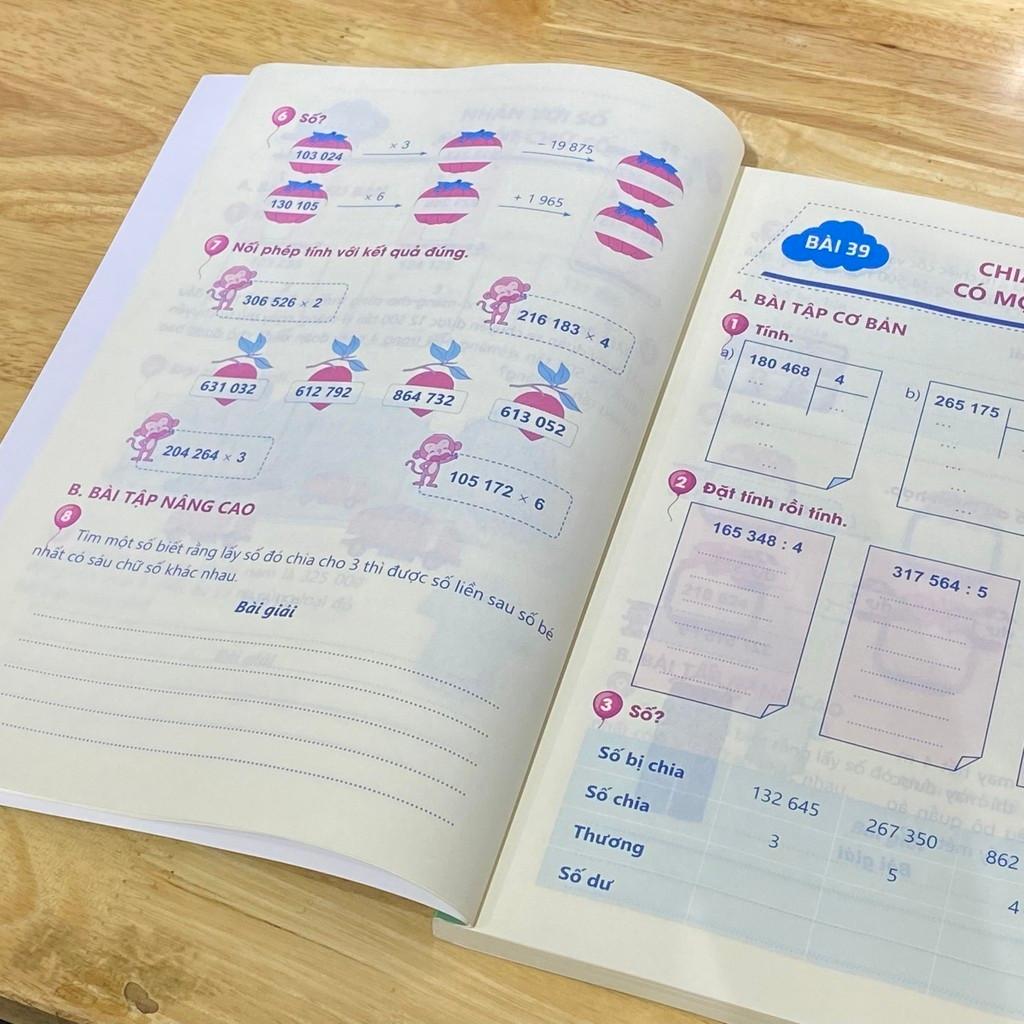 6 Số?
103 024 × 3 – 19 875
130 105 × 6 + 1 965
7 Nối phép tính với kết quả đúng.
306 526 × 2
216 183 × 4
631 032 612 792 864 732 613 052
204 264 × 3
105 172 × 6
B. BÀI TẬP NÂNG CAO
8 Tìm một số biết rằng lấy số đó chia cho 3 thì được số liền sau số bé
nhất có sáu chữ số khác nhau.
Bài giải
BÀI 39
CHIA
CÓ MỘ
A. BÀI TẬP CƠ BẢN
1 Tính.
a) 180 468 4
... ...
...
...
...
b) 265 175
...
...
...
...
2 Đặt tính rồi tính.
165 348 : 4
317 564 : 5
3 Số?
Số bị chia 132 645 267 350 862
Số chia 3 5 4
Thương
Số dư